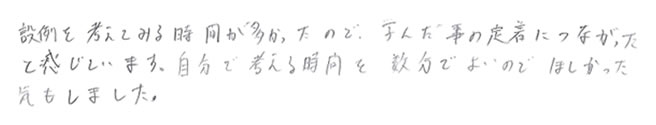 設例を考えてみる時間が多かったので、学んだ事の定着につながった
と感じています。自分で考える時間を数分でよいのでほしかった
気もしました。